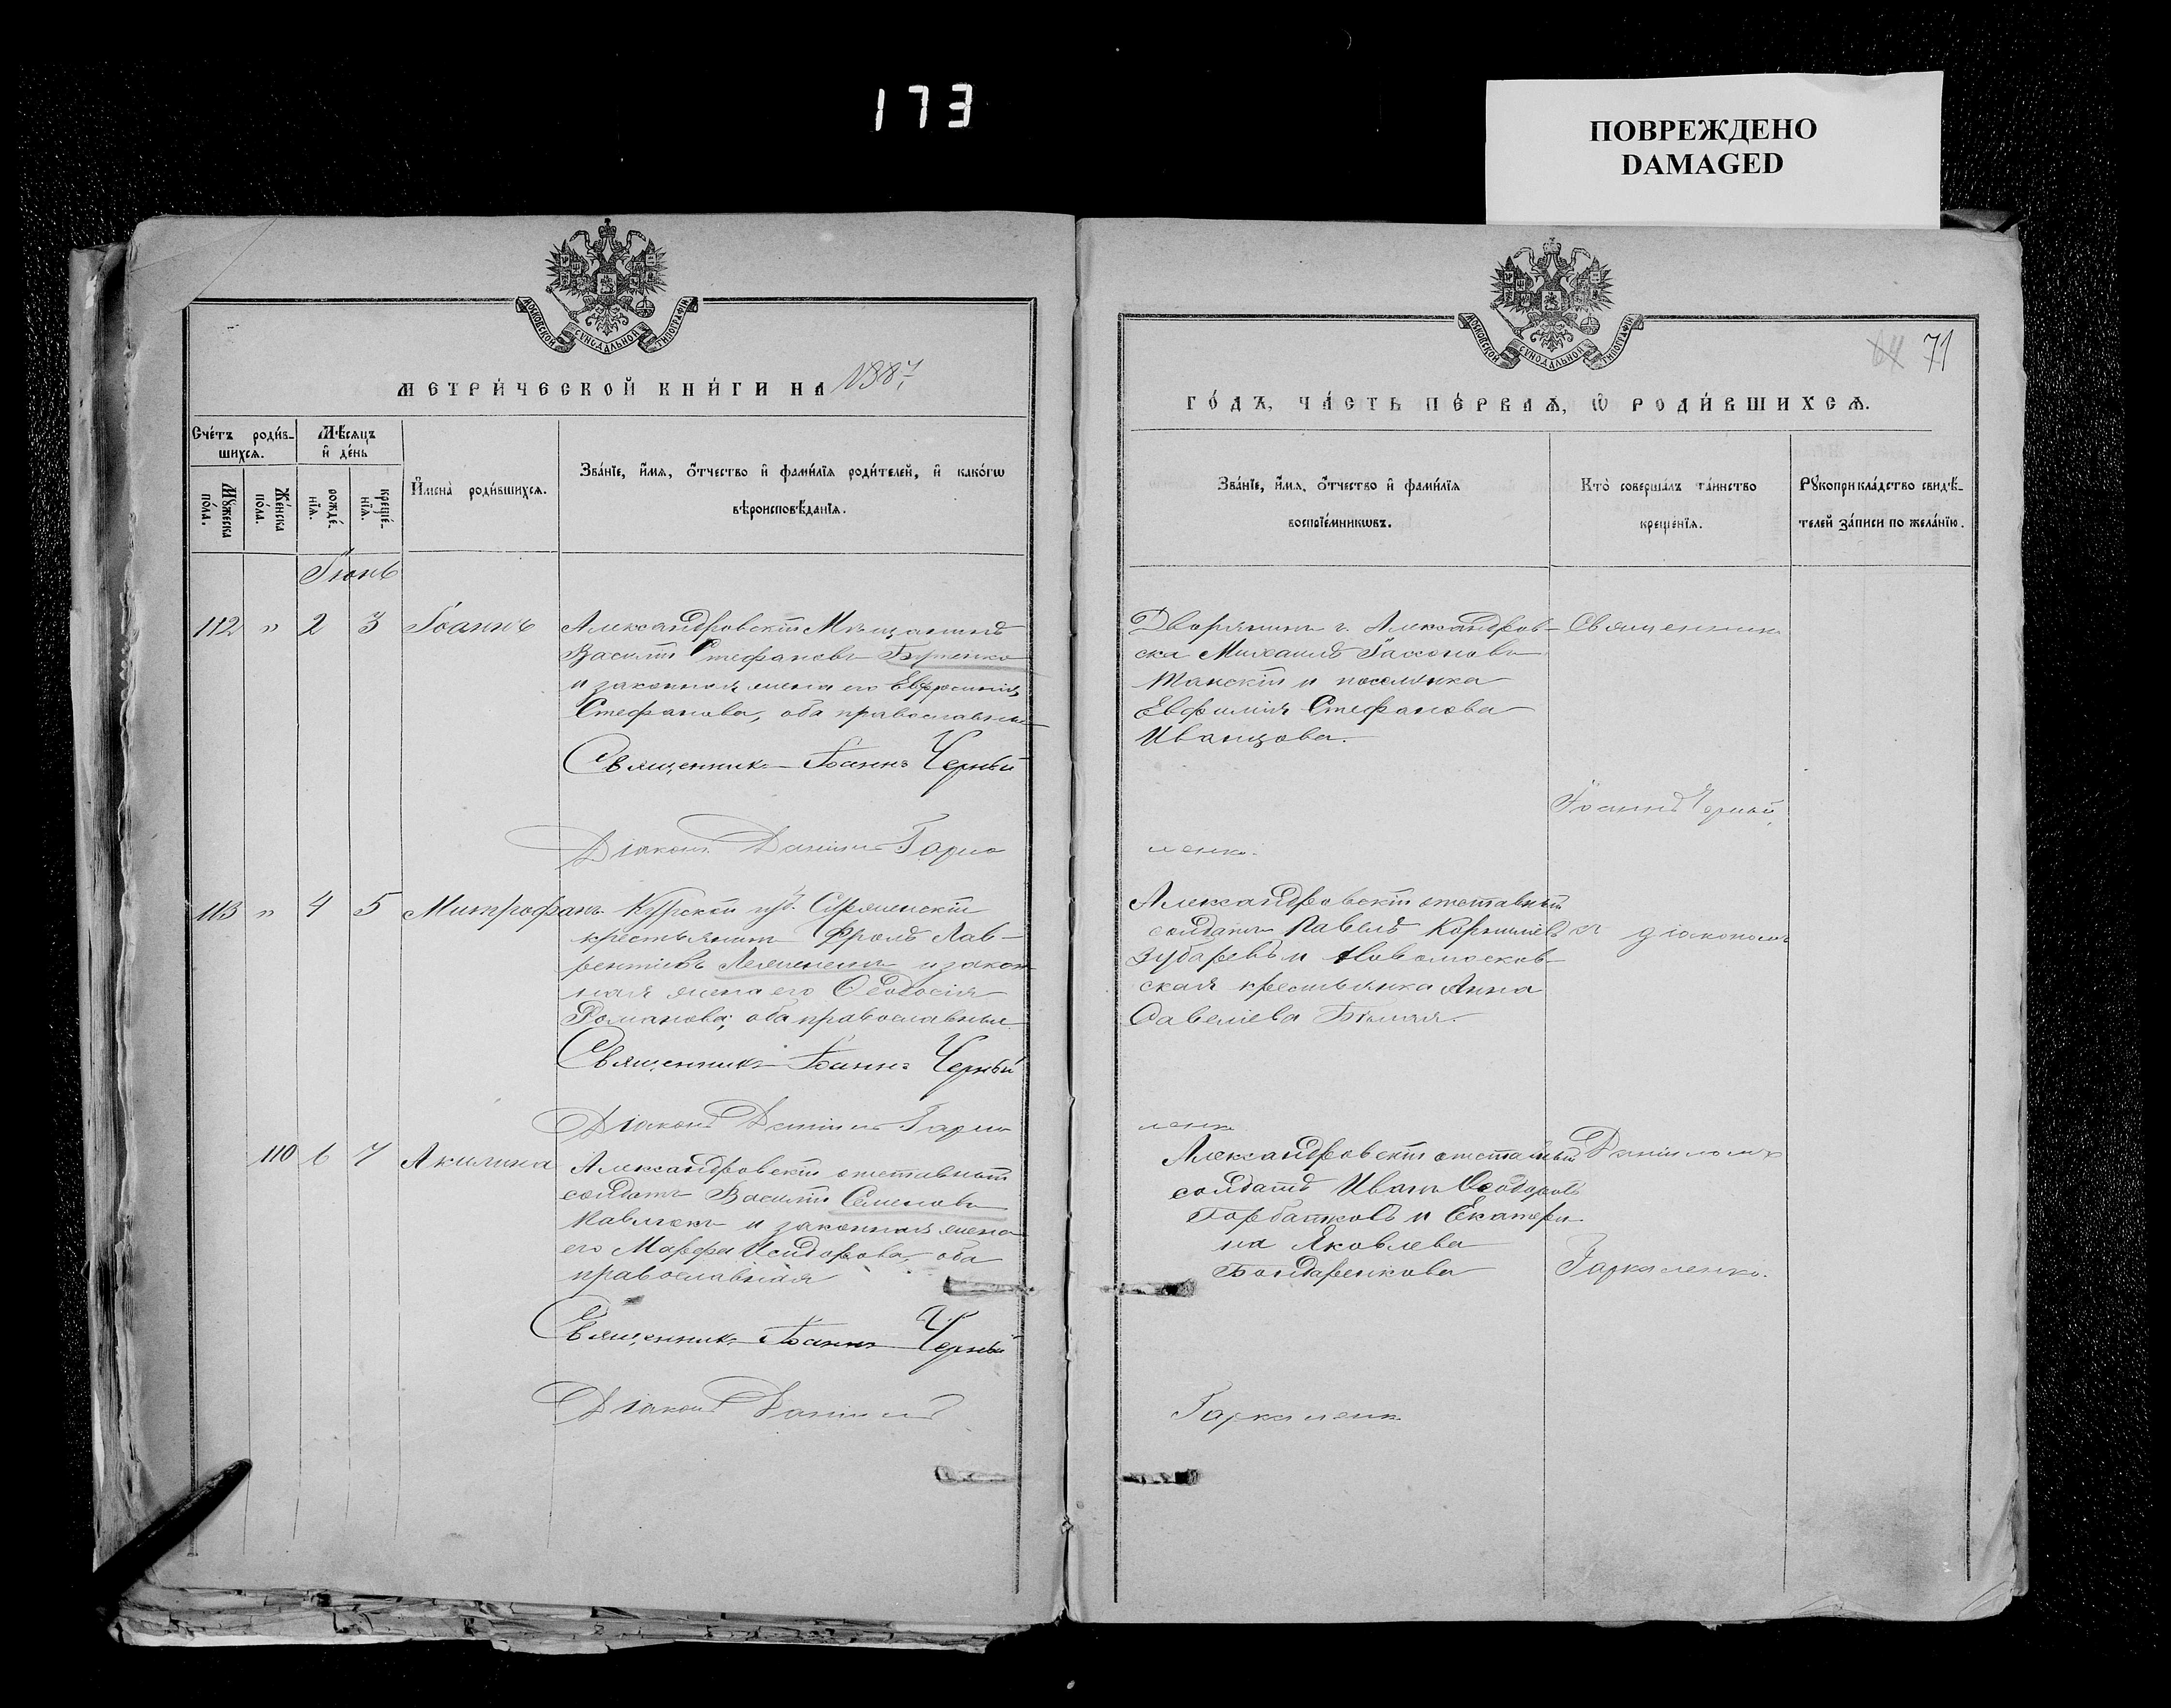 173
ПОВРЕЖДЕНО
DAMAGED
МОСКОВСКОЙ СѴНОДАЛЬНОЙ ТИПОГРАФІИ
МЕТРИ́ЧЕСКОЙ КНИ́ГИ НА 1887
Сче́тъ роди́в-
шихсѧ.
Мꙋ́жеска
по́ла.
Же́нска
по́ла.
Мѣ́сѧцъ
и҆ де́нь
рожде́-
нїѧ.
креще́-
нїѧ.
И҆мена̀ роди́вшихсѧ.
Зва́нїе, и҆́мѧ, ѻ҆́тчество и҆ фами́лїѧ роди́телей, и҆ како́гѡ
вѣроисповѣ́данїѧ.
Іюнь
112 " 2 3 Іоаннъ
Александровскій Мѣщанинъ
Василій Стефановъ
и законная жена его Евфросинія
Стефанова, оба православные
Священникъ Іоаннъ Черный
Діаконъ Даніилъ Гарка
113 " 4 5 Митрофанъ
Курской губ.
крестьянинъ Фролъ Лав-
рентіевъ и закон-
ная жена его Ѳеодосія
Романова, оба православные
Священникъ Іоаннъ Черный
Діаконъ Даніилъ Гарка
110 6 7 Акилина
Александровскій отставный
солдатъ Василій Семеновъ
Павлюкъ и законная жена
его Марфа Исидорова, оба
православная
Священникъ Іоаннъ Черный
Діаконъ Даніилъ
МОСКОВСКОЙ СѴНОДАЛЬНОЙ ТИПОГРАФІИ
64 71
ГО́ДЪ, ЧА́СТЬ ПЕ́РВАѦ, Ѽ РОДИ́ВШИХСѦ.
Зва́нїе, и҆́мѧ, ѻ҆́тчество и҆ фами́лїѧ
воспрїе́мникѡвъ.
Кто̀ соверша́лъ та́инство
креще́нїѧ.
Рꙋкоприкла́дство свидѣ́-
телей за́писи по жела́нїю.
Дворянинъ г. Александров-
ска Михаилъ
и поселянка
Евфимія Стефанова
Иванцова.
Священникъ
Іоаннъ Черный,
ленко.
Александровскій отставный
солдатъ Павелъ Корнилiевъ
Зубаревъ и Новомосков-
ская крестьянка Анна
Савеліева Бѣлая.
съ діакономъ
ленко
Александровскій отставный
солдатъ Иванъ Ѳеодоровъ
Горбатковъ и Екатери-
на Яковлева
Бондаренкова
Даніиломъ
Гаркаленко.
Гаркаленко